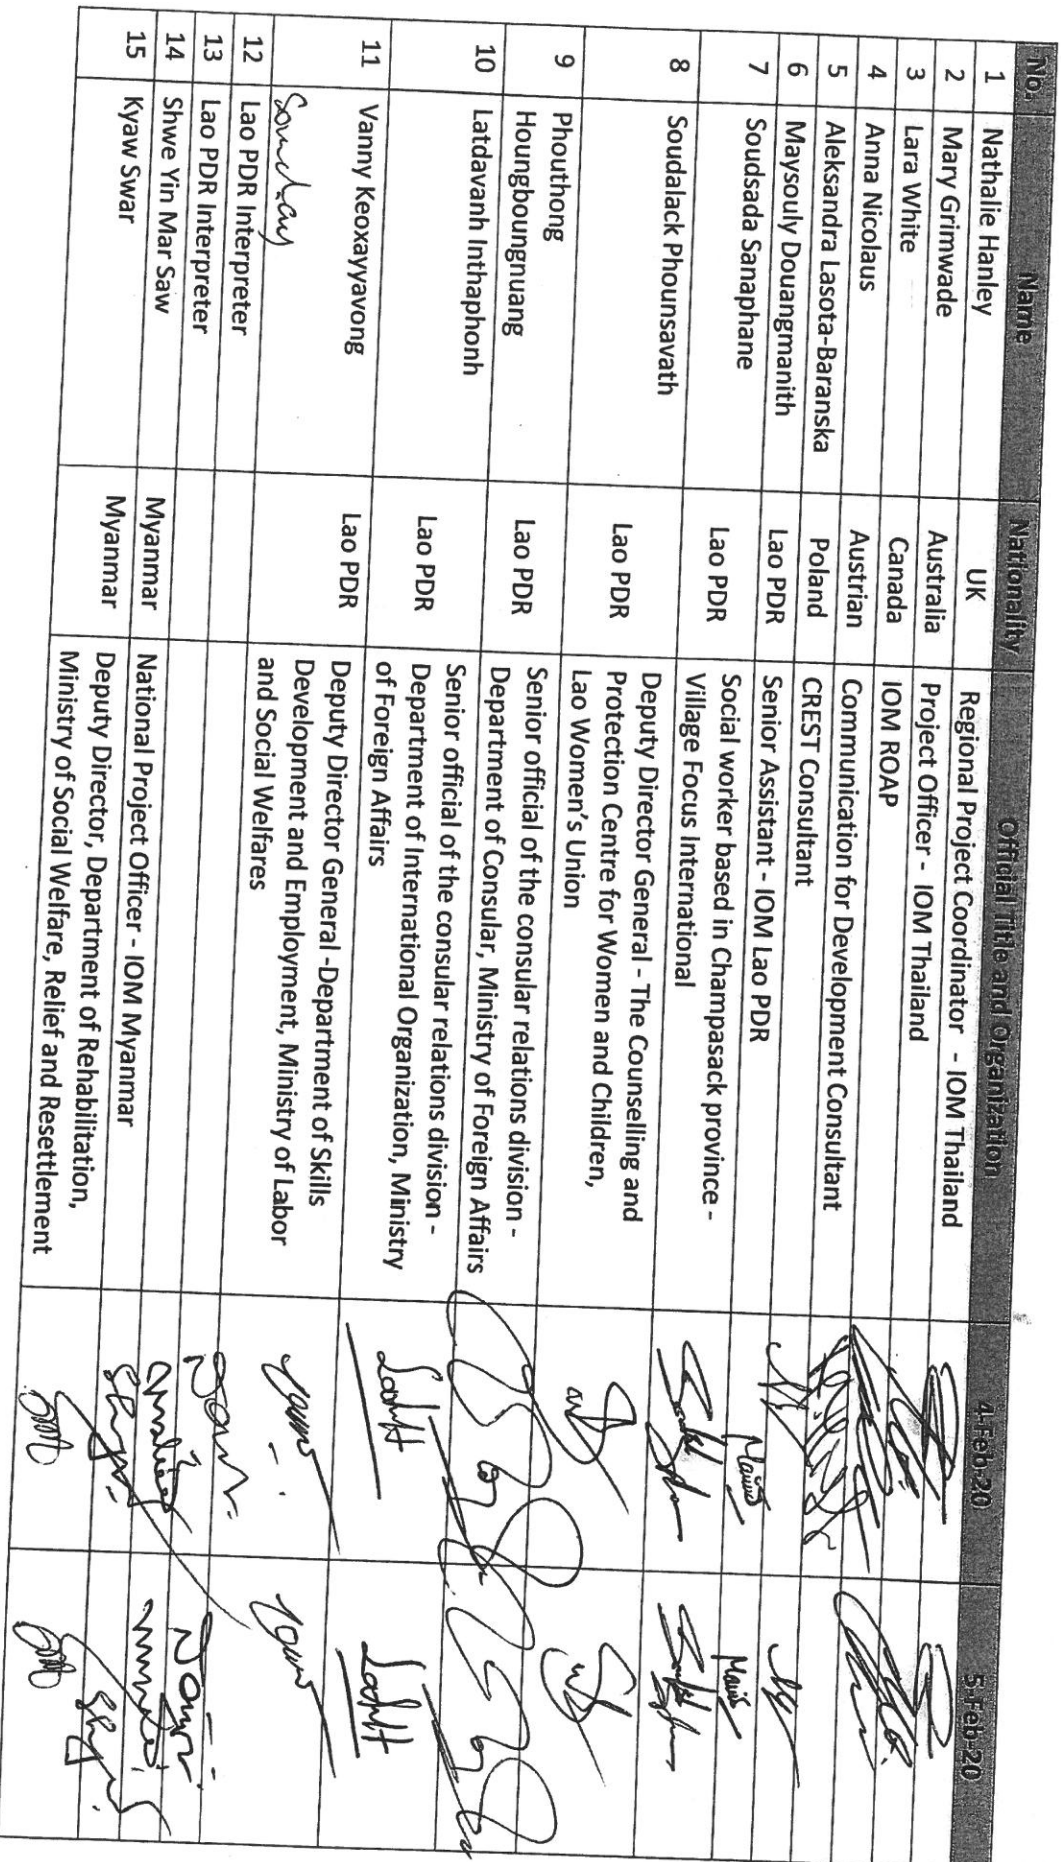 No. Name Nationality Official Title and Organization 4-Feb-20 5-Feb-20
1 Nathalie Hanley UK Regional Project Coordinator - IOM Thailand
2 Mary Grimwade Australia Project Officer - IOM Thailand
3 Lara White Canada IOM ROAP
4 Anna Nicolaus Austrian Communication for Development Consultant
5 Aleksandra Lasota-Baranska Poland CREST Consultant
6 Maysouly Douangmanith Lao PDR Senior Assistant - IOM Lao PDR
7 Soudsada Sanaphane Lao PDR Social worker based in Champasack province -
Village Focus International
8 Soudalack Phounsavath Lao PDR Deputy Director General - The Counselling and
Protection Centre for Women and Children,
Lao Women's Union
9 Phouthong
Houngboungnuang Lao PDR Senior official of the consular relations division -
Department of Consular, Ministry of Foreign Affairs
10 Latdavanh Inthaphonh Lao PDR Senior official of the consular relations division -
Department of International Organization, Ministry
of Foreign Affairs
11 Vanny Keoxayyavong Lao PDR Deputy Director General -Department of Skills
Development and Employment, Ministry of Labor
and Social Welfares
12 Lao PDR Interpreter
13 Lao PDR Interpreter
14 Shwe Yin Mar Saw Myanmar National Project Officer - IOM Myanmar
15 Kyaw Swar Myanmar Deputy Director, Department of Rehabilitation,
Ministry of Social Welfare, Relief and Resettlement